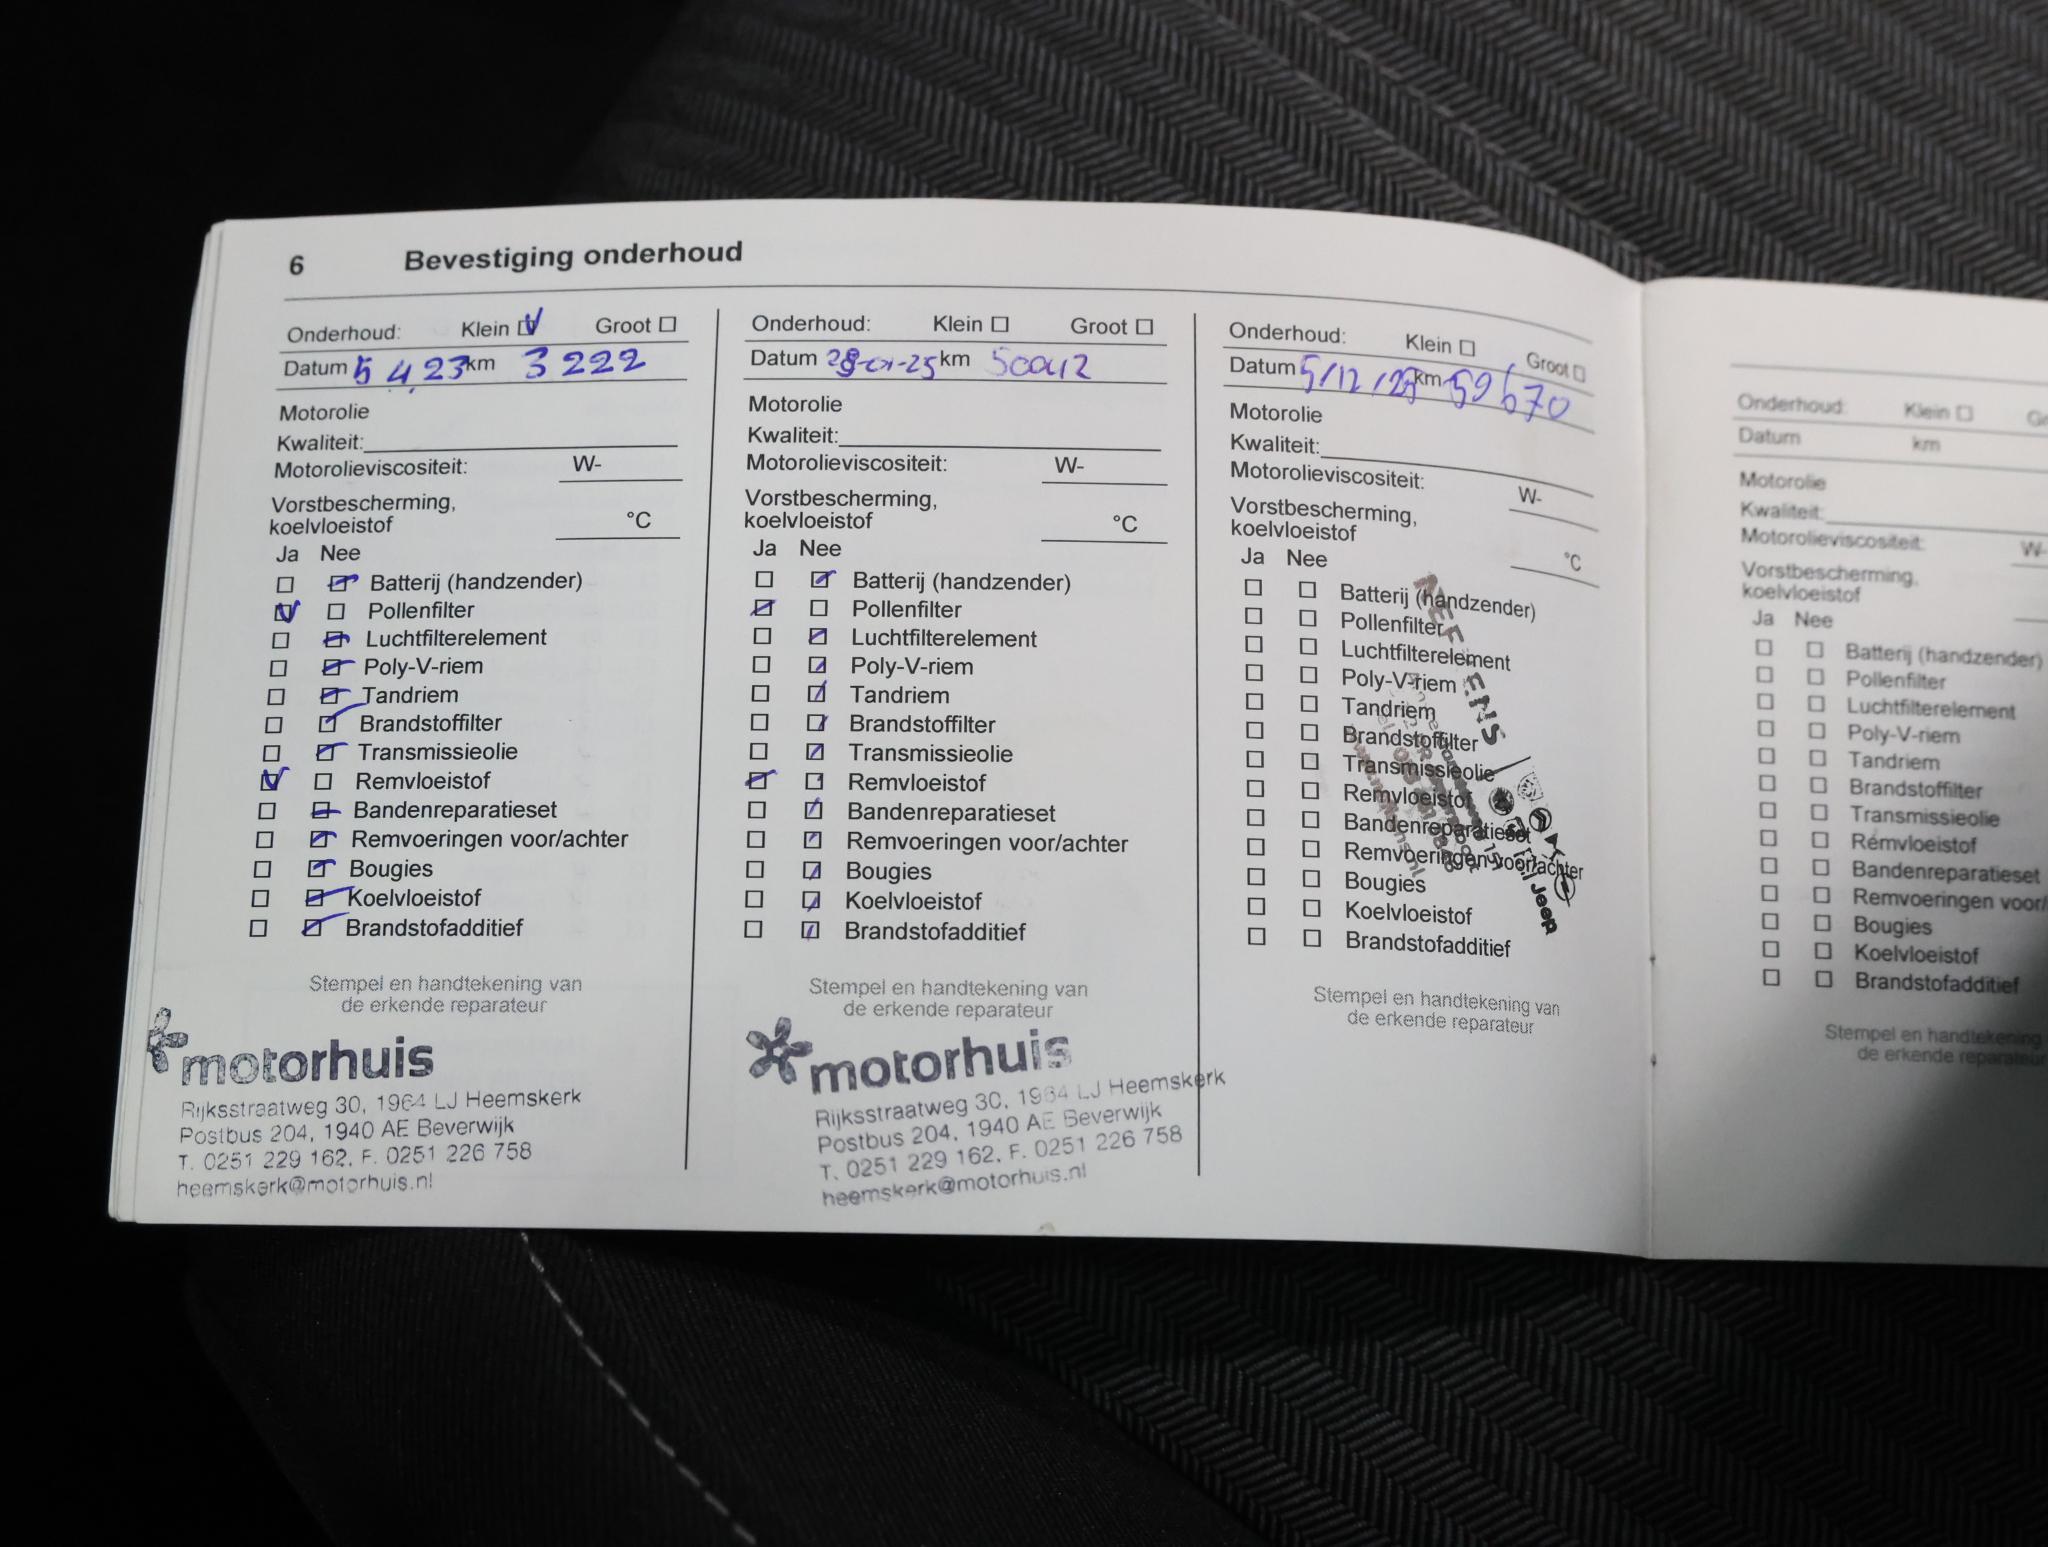 6 Bevestiging onderhoud
Onderhoud: Klein Groot
Datum 5 4.23 km 3 222
Motorolie
Kwaliteit:
Motorolieviscositeit: W-
Vorstbescherming,
koelvloeistof °C
Ja Nee
Batterij (handzender)
Pollenfilter
Luchtfilterelement
Poly-V-riem
Tandriem
Brandstoffilter
Transmissieolie
Remvloeistof
Bandenreparatieset
Remvoeringen voor/achter
Bougies
Koelvloeistof
Brandstofadditief
Stempel en handtekening van
de erkende reparateur
motorhuis
Rijksstraatweg 30, 1964 LJ Heemskerk
Postbus 204, 1940 AE Beverwijk
T. 0251 229 162, F. 0251 226 758
heemskerk@motorhuis.nl
Onderhoud: Klein Groot
Datum 28-01-25 km 50012
Motorolie
Kwaliteit:
Motorolieviscositeit: W-
Vorstbescherming,
koelvloeistof °C
Ja Nee
Batterij (handzender)
Pollenfilter
Luchtfilterelement
Poly-V-riem
Tandriem
Brandstoffilter
Transmissieolie
Remvloeistof
Bandenreparatieset
Remvoeringen voor/achter
Bougies
Koelvloeistof
Brandstofadditief
Stempel en handtekening van
de erkende reparateur
motorhuis
Rijksstraatweg 30, 1964 LJ Heemskerk
Postbus 204, 1940 AE Beverwijk
T. 0251 229 162, F. 0251 226 758
heemskerk@motorhuis.nl
Onderhoud: Klein Groot
Datum 5/12/25 km 59670
Motorolie
Kwaliteit:
Motorolieviscositeit: W-
Vorstbescherming,
koelvloeistof °C
Ja Nee
Batterij (handzender)
Pollenfilter
Luchtfilterelement
Poly-V-riem
Tandriem
Brandstoffilter
Transmissieolie
Remvloeistof
Bandenreparatieset
Remvoeringen voor/achter
Bougies
Koelvloeistof
Brandstofadditief
Jeep
Stempel en handtekening van
de erkende reparateur
Onderhoud: Klein
Datum km
Motorolie
Kwaliteit:
Motorolieviscositeit: W-
Vorstbescherming,
koelvloeistof
Ja Nee
Batterij (handzender)
Pollenfilter
Luchtfilterelement
Poly-V-riem
Tandriem
Brandstoffilter
Transmissieolie
Remvloeistof
Bandenreparatieset
Remvoeringen voor/
Bougies
Koelvloeistof
Brandstofadditief
Stempel en handtekening
de erkende reparateur